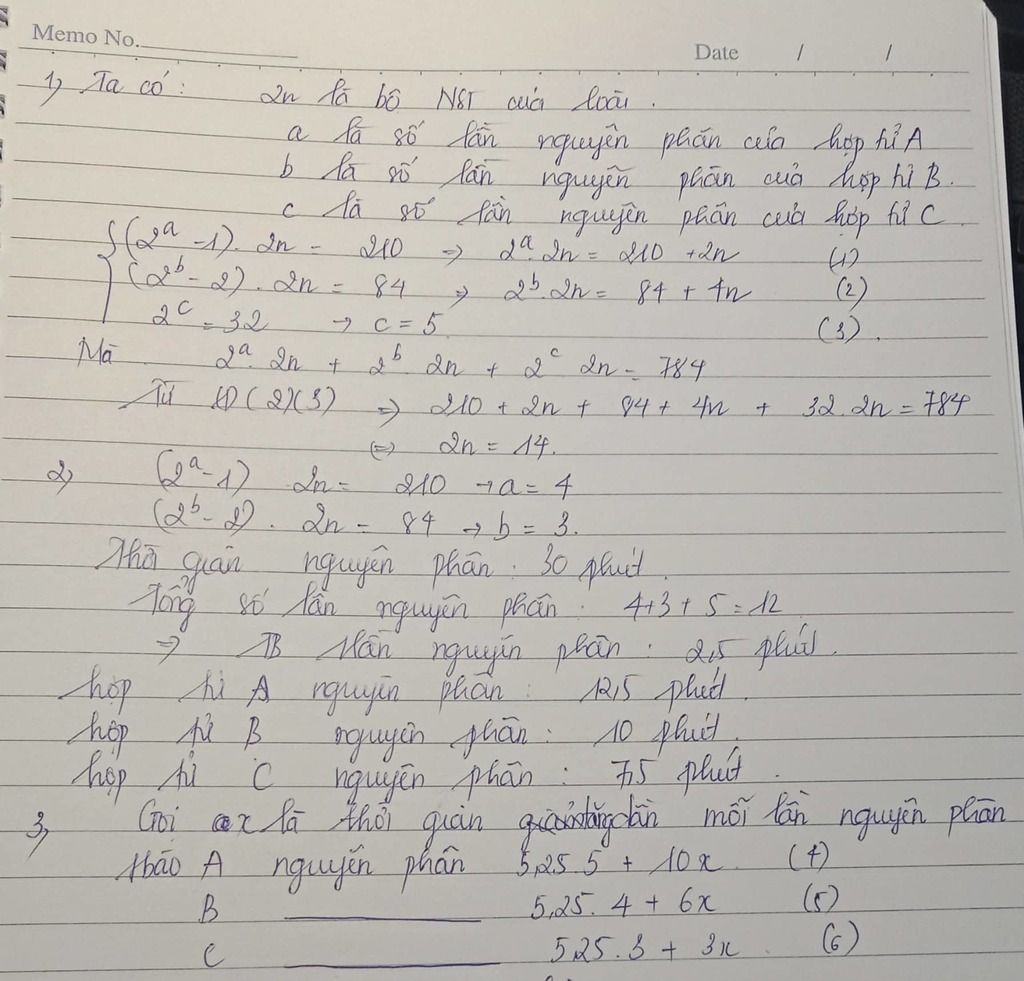 Memo No.
Date / /
1, Ta có : 2n là bộ NST của loài .
a là số lần nguyên phân của hợp tử A
b là số lần nguyên phân của hợp tử B.
c là số lần nguyên phân của hợp tử C
(2^a - 1). 2n = 210 => 2^a. 2n = 210 + 2n (1)
(2^b - 2). 2n = 84 => 2^b. 2n = 84 + 4n (2)
2^c = 32 → c = 5 (3).
Mà 2^a. 2n + 2^b. 2n + 2^c 2n = 784
Từ (1)(2)(3) => 210 + 2n + 84 + 4n + 32. 2n = 784
<=> 2n = 14.
2, (2^a - 1) 2n = 210 → a = 4
(2^b - 2). 2n = 84 → b = 3.
Thời gian nguyên phân : 30 phút.
Tổng số lần nguyên phân : 4+3+5 = 12
=> TB 1 lần nguyên phân : 2,5 phút.
hợp tử A nguyên phân : 12,5 phút.
hợp tử B nguyên phân : 10 phút.
hợp tử C nguyên phân : 7,5 phút.
3, Gọi x là thời gian mỗi lần nguyên phân
A nguyên phân 5,25.5 + 10x (4)
B 5,25. 4 + 6x (5)
C 5,25.3 + 3x . (6)